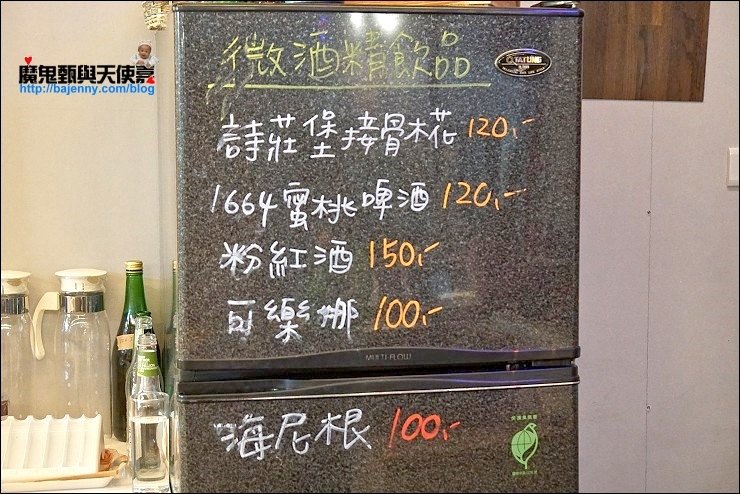 魔鬼甄與天使嘉
http://bajenny.com/blog
微酒精飲品
TATUNG
詩莊堡接骨木花 120.-
1664蜜桃啤酒 120.-
粉紅酒 150.-
可樂娜 100.-
MULTI-FLOW
海尼根 100.-